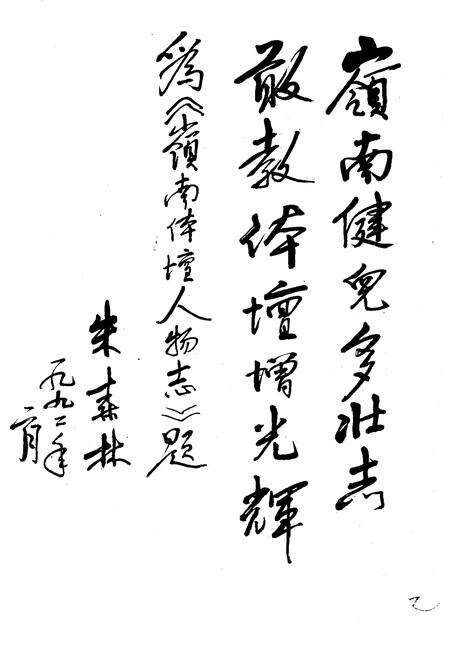 嶺南健兒多壯志
敢教体壇增光輝
爲《嶺南体壇人物志》題
朱森林
一九九二年
二月